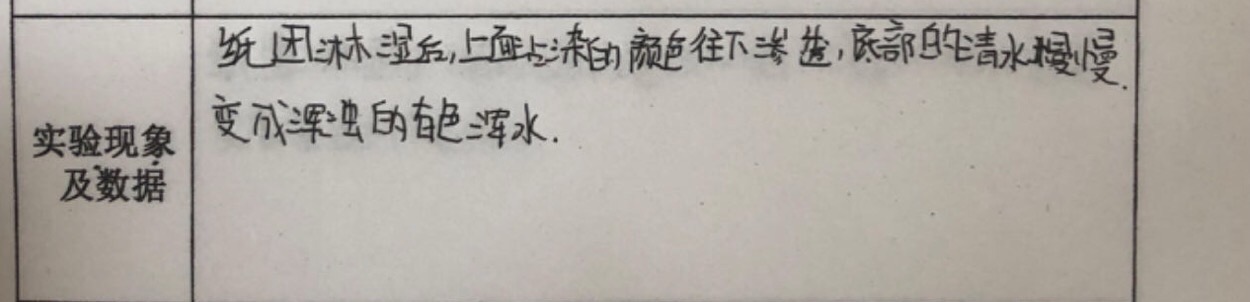 纸团淋湿后,上面沾染的颜色往下渗透,底部的清水慢慢
变成浑浊的有色浑水.
实验现象
及数据